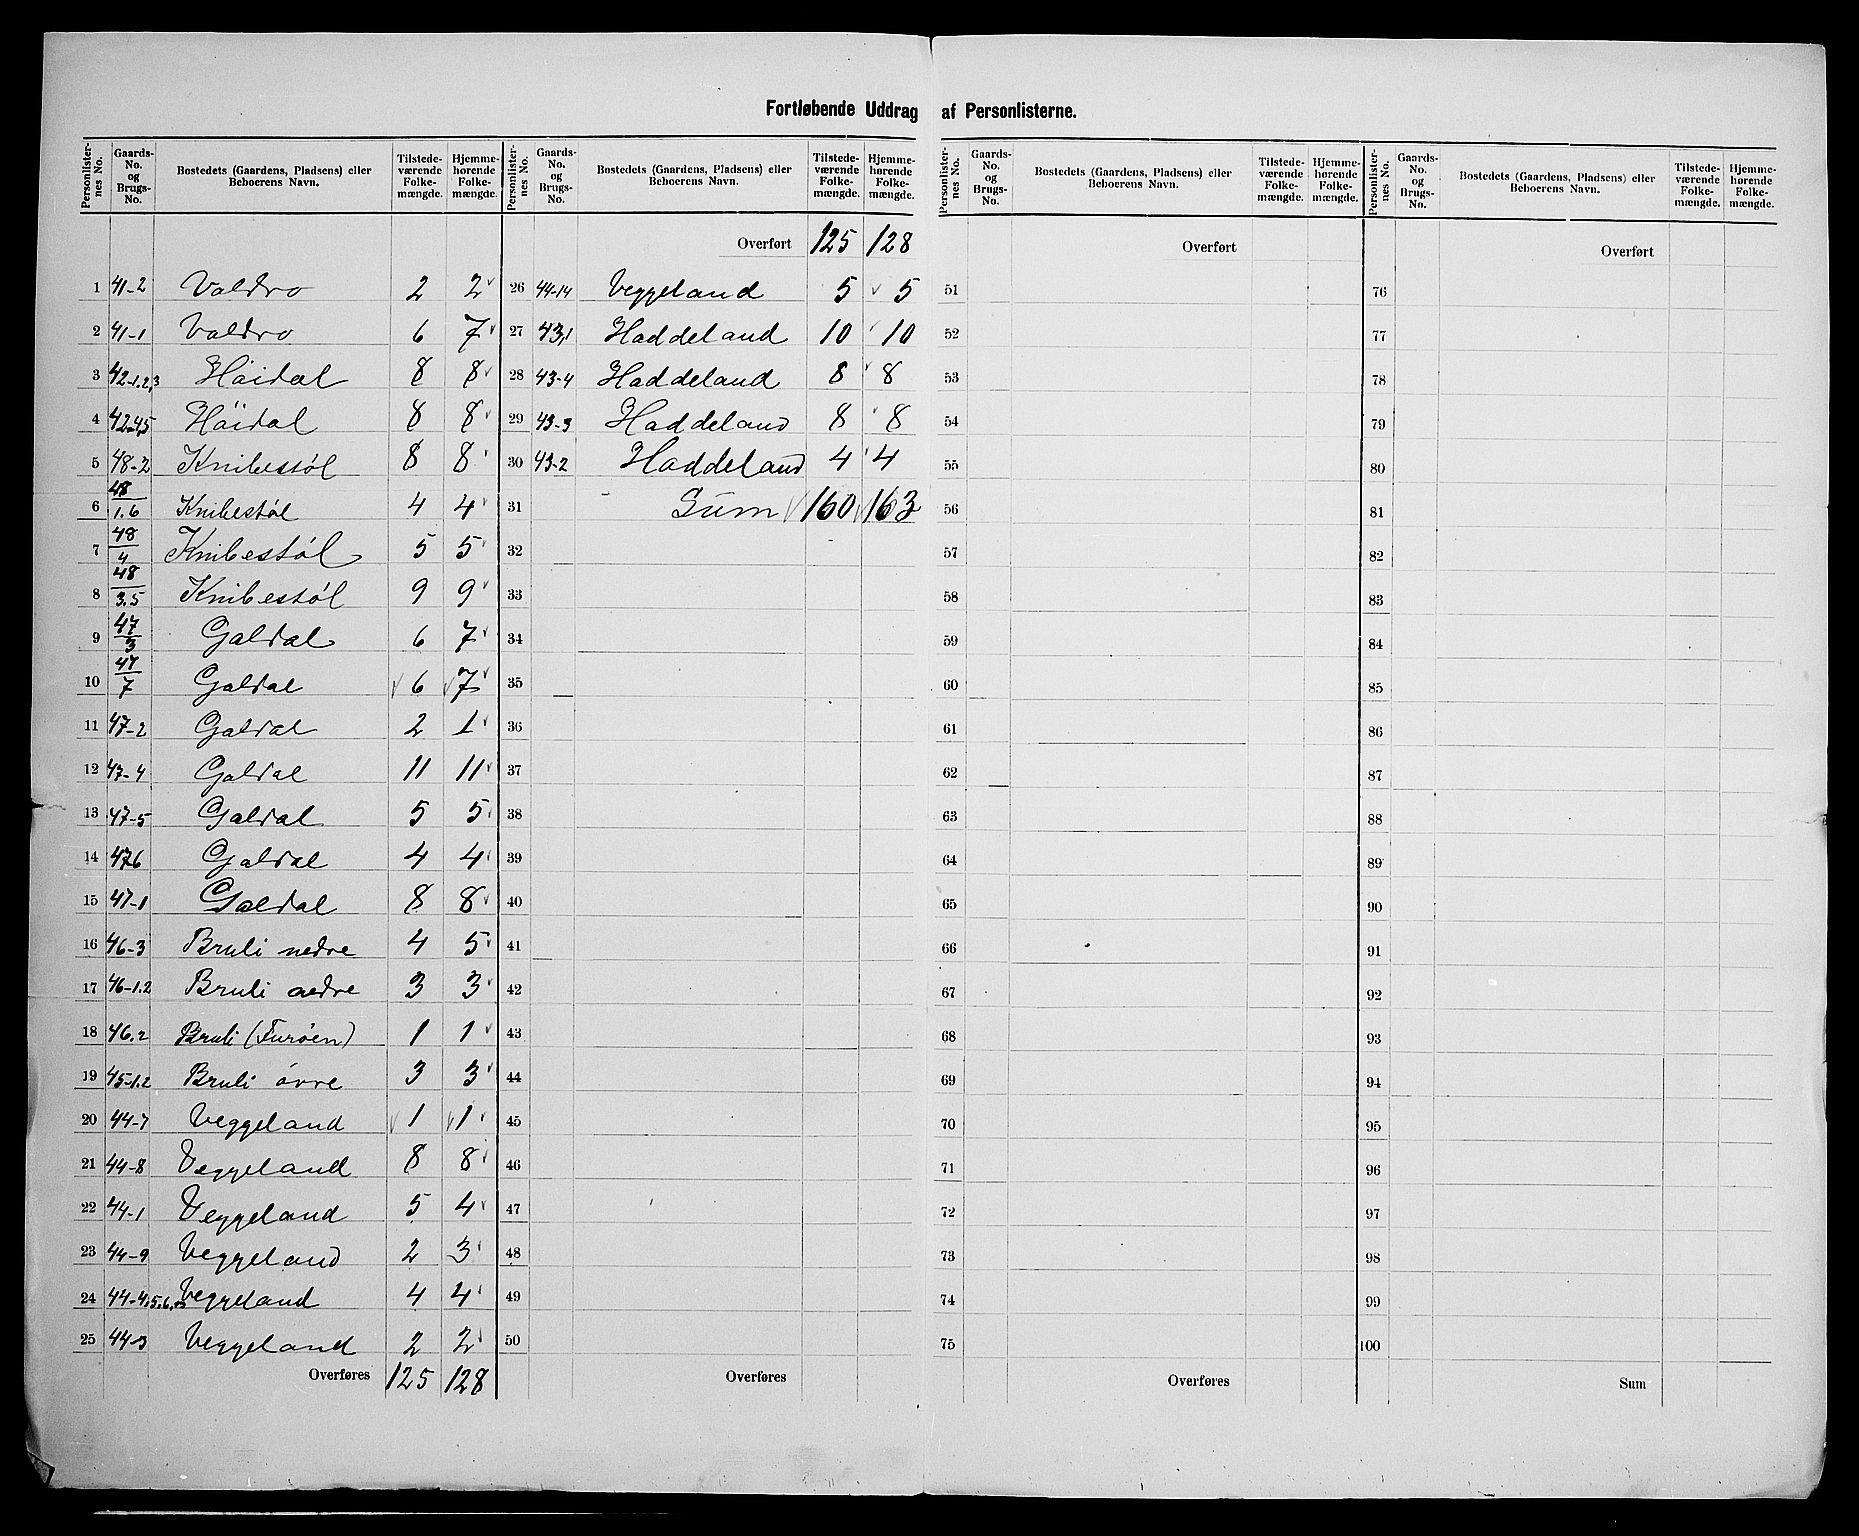 Fortløbende Uddrag af Personlisterne.
Personlisternes No. | Gaards-No. og Brugs-No. | Bostedets (Gaardens, Pladsens) eller Beboerens Navn. | Tilstedeværende Folkemængde. | Hjemmehørende Folkemængde.
1 41-2 Valdro 2 2
2 41-1 Valdro 6 7
3 42-1.2,3 Höidal 8 8
4 42-4,5 Höidal 8 8
5 48-2 Knibestøl 8 8
6 48/1.6 Knibestøl 4 4
7 48/4 Knibestøl 5 5
8 48/3.5 Knibestøl 9 9
9 47/3 Galdal 6 7
10 47/7 Galdal 6 7
11 47-2 Galdal 2 1
12 47-4 Galdal 11 11
13 47-5 Galdal 5 5
14 47-6 Galdal 4 4
15 47-1 Galdal 8 8
16 46-3 Bruli nedre 4 5
17 46-1.2 Bruli nedre 3 3
18 46.2 Bruli (Furøen) 1 1
19 45-1.2 Bruli övre 3 3
20 44-7 Veggeland 1 1
21 44-8 Veggeland 8 8
22 44-1 Veggeland 5 4
23 44-9 Veggeland 2 3
24 44-4,5.6, Veggeland 4 4
25 44-3 Veggeland 2 2
Overføres 125 128
Personlisternes No. | Gaards-No. og Brugs-No. | Bostedets (Gaardens, Pladsens) eller Beboerens Navn. | Tilstedeværende Folkemængde. | Hjemmehørende Folkemængde.
Overført 125 128
26 44-14 Veggeland 5 5
27 43,1 Haddeland 10 10
28 43-4 Haddeland 8 8
29 43-3 Haddeland 8 8
30 43-2 Haddeland 4 4
31 Sum 160 163
32
33
34
35
36
37
38
39
40
41
42
43
44
45
46
47
48
49
50
Overføres
Personlisternes No. | Gaards-No. og Brugs-No. | Bostedets (Gaardens, Pladsens) eller Beboerens Navn. | Tilstedeværende Folkemængde. | Hjemmehørende Folkemængde.
Overført
51
52
53
54
55
56
57
58
59
60
61
62
63
64
65
66
67
68
69
70
71
72
73
74
75
Overføres
Personlisternes No. | Gaards-No. og Brugs-No. | Bostedets (Gaardens, Pladsens) eller Beboerens Navn. | Tilstedeværende Folkemængde. | Hjemmehørende Folkemængde.
Overført
76
77
78
79
80
81
82
83
84
85
86
87
88
89
90
91
92
93
94
95
96
97
98
99
100
Sum